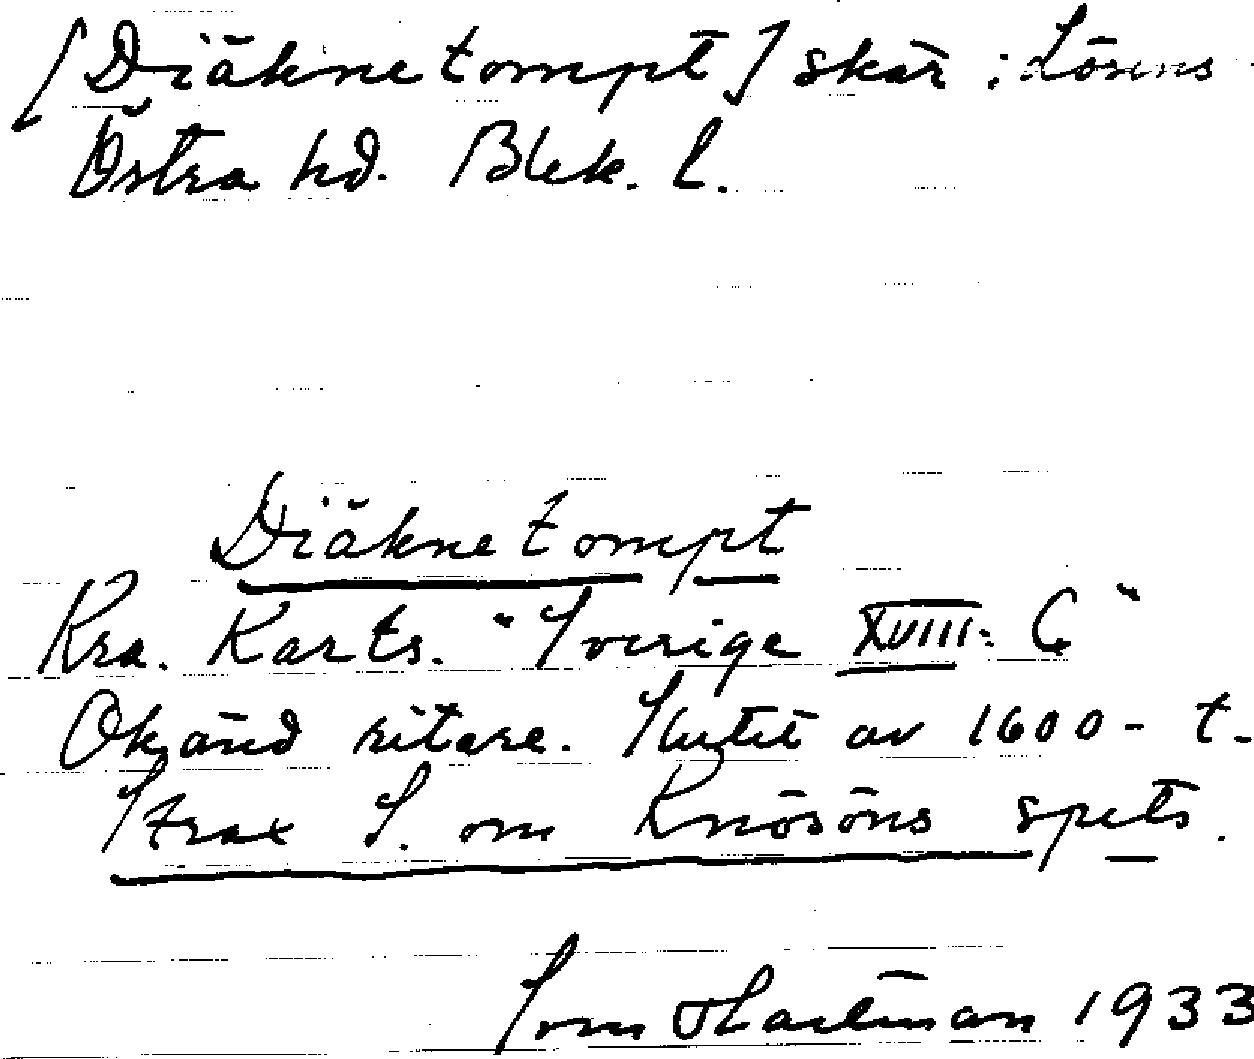 [Diäknetompt] skär i Lösens
Östra hd. Blek. l.
Diäknetompt
Kra. Karts. "Sverige XVIII: 6"
Okänd ritare. Slutet av 1600-t.
Strax S. om Knösöns spets.
Sven Hartman 1933